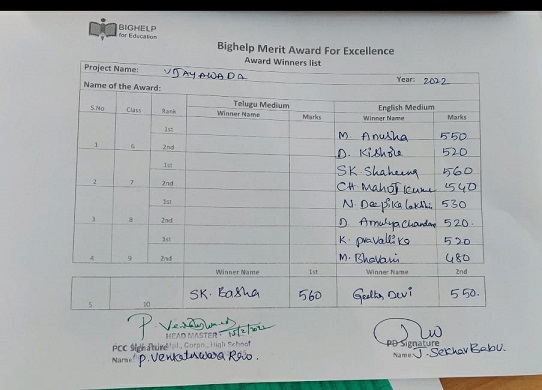 BIGHELP
for Education
Bighelp Merit Award For Excellence
Award Winners list
Project Name: VIJAYAWADA Year: 2022
Name of the Award:
Telugu Medium English Medium
S.No Class Rank Winner Name Marks Winner Name Marks
1st M. Anusha 550
1 6 2nd D. Kishore 520
1st SK Shaheena 560
2 7 2nd CH Manoj Kumar 540
1st N. Deepika Lakshmi 530
3 8 2nd D. Amulya Chandana 520.
1st K. Pravallika 520
4 9 2nd M. Bhavani 480
Winner Name 1st Winner Name 2nd
5 10 SK. Basha 560 Geetha Devi 550.
HEAD MASTER 15/2/2022
PCC Signature Corpn., High School PD Signature
Name P. Venkateswara Rao. Name J. Sekhar Babu.